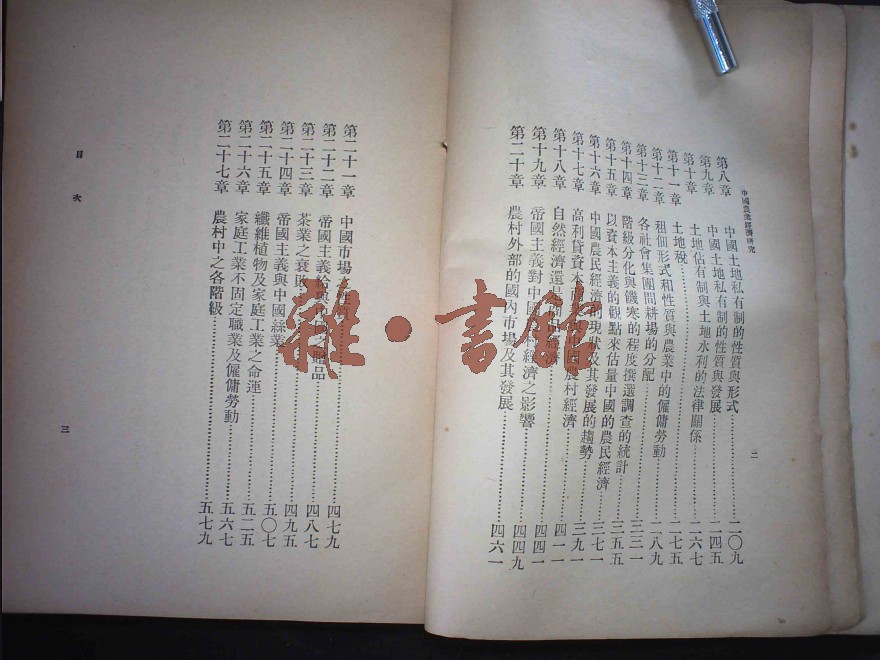 中國農業經濟研究
二
第八章 中國土地私有制的性質與形式 一〇九
第九章 中國土地私有制的性質與發展 一四五
第十章 土地佔有制與土地水利的法律關係 一六七
第十一章 土地稅 二七五
第十二章 租佃形式和性質與農業中的僱傭勞動 二八九
第十三章 各社會集團間耕場的分配 三三一
第十四章 階級分化與饑寒的程度撰選調查的統計 三五五
第十五章 以資本主義的觀點來估量中國的農民經濟 三七一
第十六章 中國農民經濟的現狀及其發展的趨勢 三九一
第十七章 高利貸資本 農村經濟 四一一
第十八章 自然經濟還是 經濟 四四一
第十九章 帝國主義對中國 村經濟之影響 四四九
第二十章 農村外部的國內市場及其發展 四六一
第二十一章 中國市場 性 四七九
第二十二章 帝國主義給與 贈品 四八七
第二十三章 茶業之衰敗 四九五
第二十四章 帝國主義與中國絲業 五〇七
第二十五章 纖維植物及家庭工業之命運 五二五
第二十六章 家庭工業不固定職業及僱傭勞動 五六七
第二十七章 農村中之各階級 五七九
目次
三
雜·書館